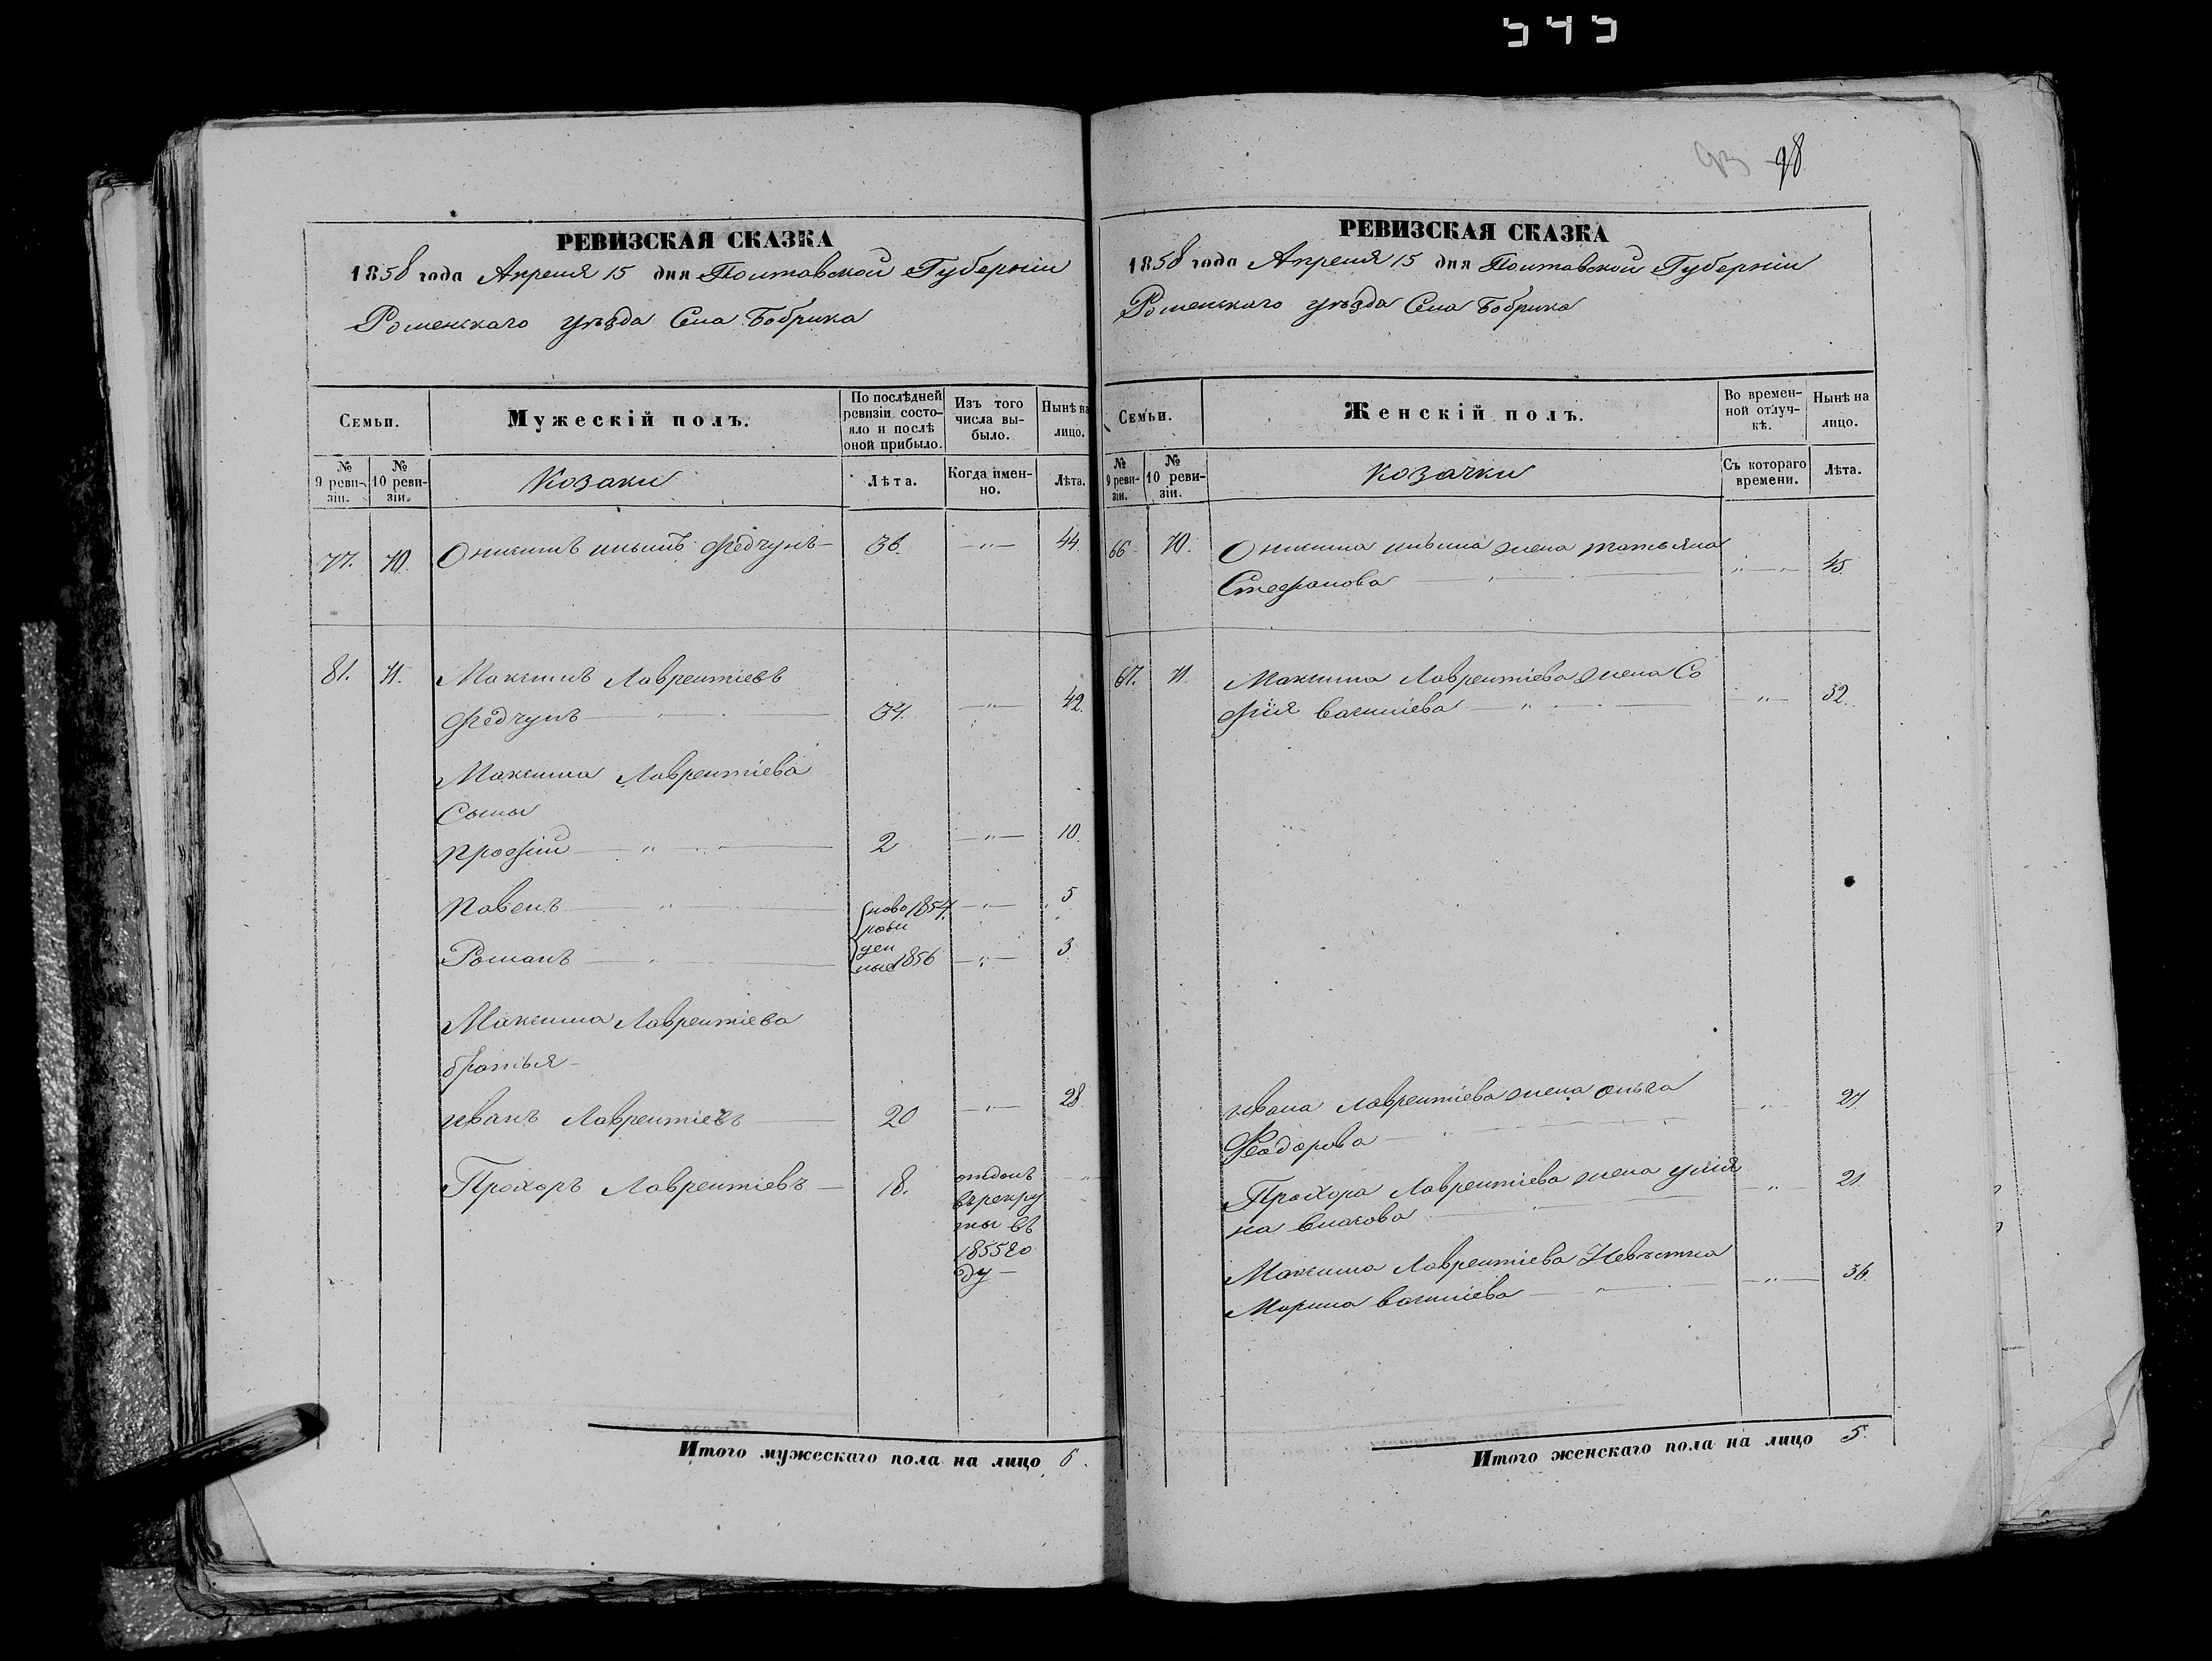 545
93 98
РЕВИЗСКАЯ СКАЗКА
1858 года Апреля 15 дня Полтавской Губерніи
Роменскаго уѣзда Села Бобрика
Семьи.
Мужескій полъ.
По послѣдней
ревизіи состо-
яло и послѣ
оной прибыло.
Изъ того
числа вы-
было.
Нынѣ на
лицо.
№
9 реви-
зіи.
№
10 реви-
зіи.
Козаки
Лѣта.
Когда имен-
но.
Лѣта.
77. 70. Федчунъ 36. 44.
81. 71. Максимъ Лаврентіевъ
Федчунъ 34. 42.
Максима Лаврентіева
Сыны
Профій 2 10.
Павелъ ново 1854. 5
рож
ден
Романъ ные 1856 3
Максима Лаврентіева
братья
Иванъ Лаврентіевъ 20 28.
Прохоръ Лаврентіевъ 18. отданъ
въ рекру
ты въ
1855 го
ду
Итого мужескаго пола на лицо 6.
РЕВИЗСКАЯ СКАЗКА
1858 года Апреля 15 дня Полтавской Губерніи
Роменскаго уѣзда Села Бобрика
Семьи.
Женскій полъ.
Во времен-
ной отлуч-
кѣ.
Нынѣ на
лицо.
№
9 реви-
зіи.
№
10 реви-
зіи.
Козачки
Съ котораго
времени.
Лѣта.
66. 70. жена татьяна
Стефанова 45.
67. 71. Максима Лаврентіева жена Со
фія василіева 32.
Ивана Лаврентіева жена ольга
Феодорова 27.
Прохора Лаврентіева жена улія
на власова 21.
Максима Лаврентіева Невѣстка
Марина василіева 36.
Итого женскаго пола на лицо 5.